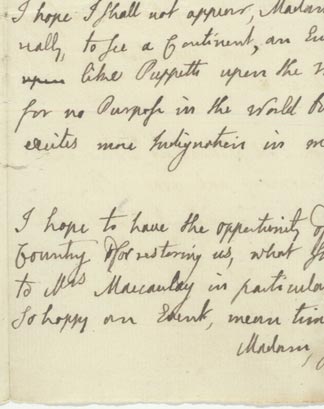 I hope I shall not appear, Madam
nally, to see a Continent, an Em
upon like Puppetts upon the
for no Purpose in the World bu
excites more Indignation in m
I hope to have the opportunity of
Country for restoring us, what
to Mrs Macaulay in particula
So happy an Event, mean tim
Madam,